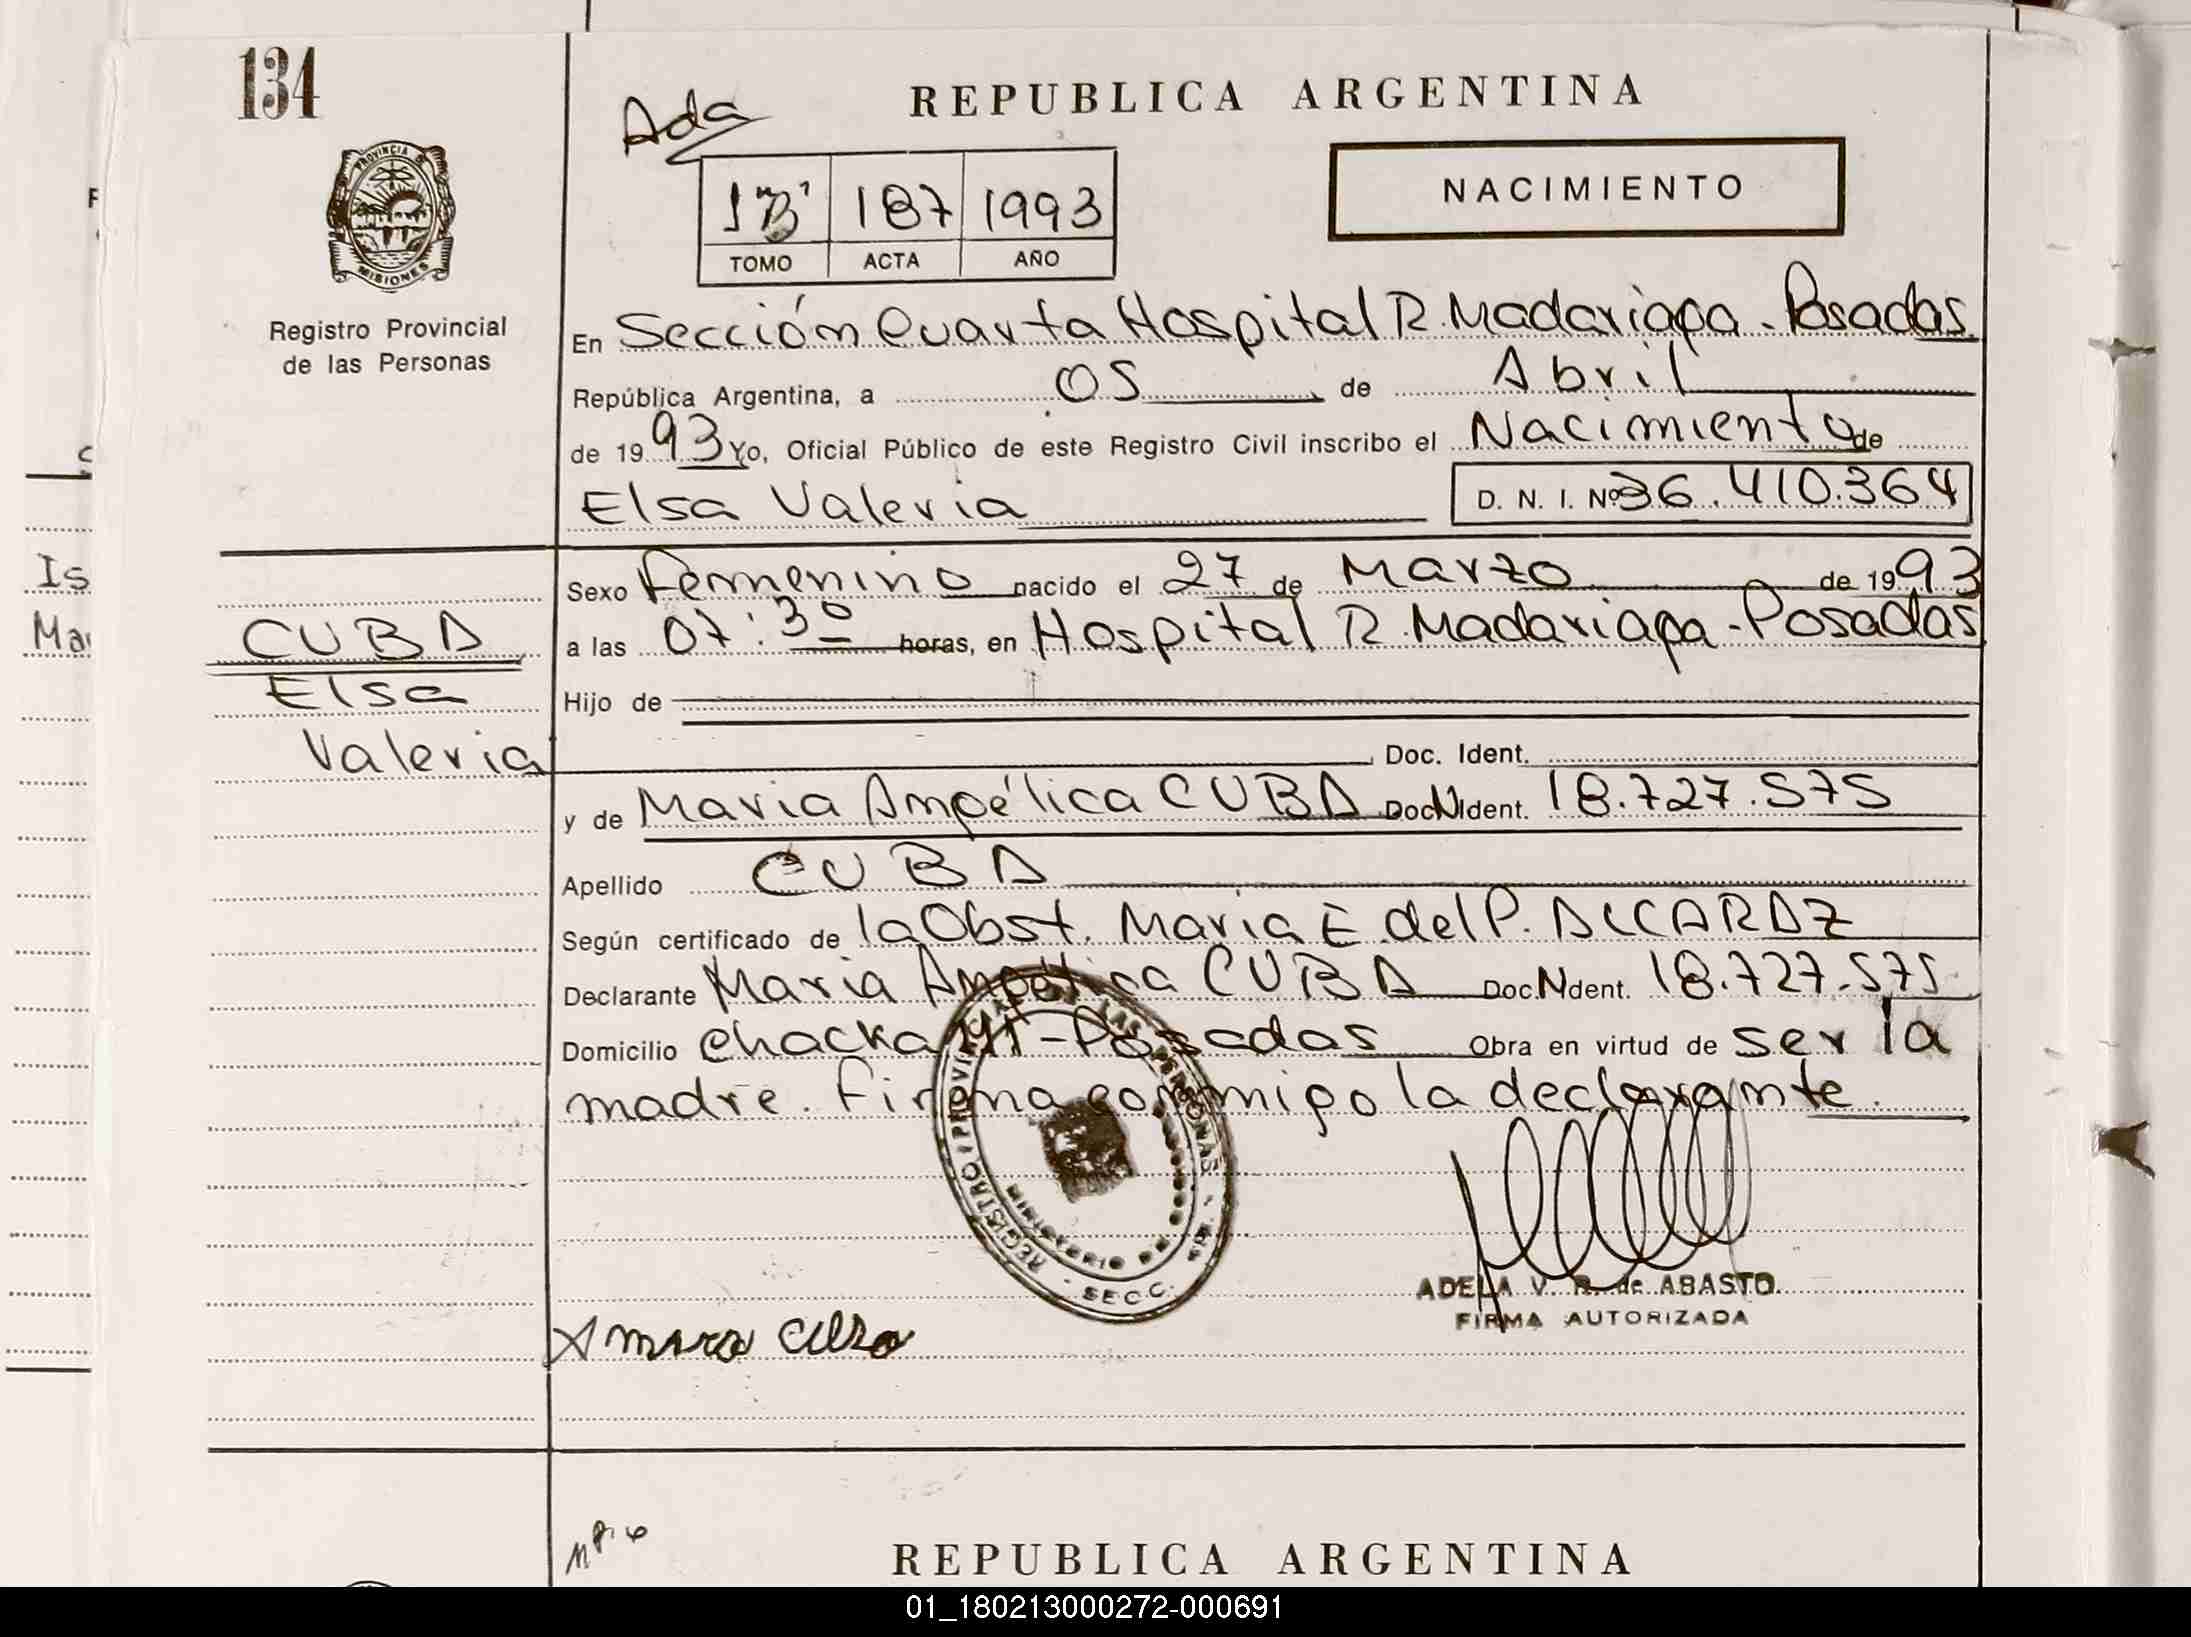 134
Ada
REPUBLICA ARGENTINA
PROVINCIA DE
MISIONES
Registro Provincial
de las Personas
1"B" 187 1993
TOMO ACTA AÑO
NACIMIENTO
En Sección Cuarta Hospital R. Madariaga - Posadas.
República Argentina, a 05 de Abril
de 1993 Yo, Oficial Público de este Registro Civil inscribo el Nacimiento de
Elsa Valeria D. N. I. Nº 36.410.364
Sexo Femenino nacido el 27 de Marzo de 1993
a las 07:30 horas, en Hospital R. Madariaga - Posadas
CUBA
Elsa
Valeria
Hijo de
Doc. Ident.
y de Maria Angélica CUBA Doc. Ident. 18.727.575
Apellido CUBA
Según certificado de la Obst. Maria E. del P. ALCARAZ
Declarante Maria Angélica CUBA Doc. Ident. 18.727.575
Domicilio Chacka - Posadas Obra en virtud de ser la
madre. Firma conmigo la declarante.
REGISTRO PROVINCIAL DE LAS PERSONAS
MINISTERIO DE
SECC.
ADELA V. R. de ABASTO
FIRMA AUTORIZADA
REPUBLICA ARGENTINA
Is
Mar
01_180213000272-000691